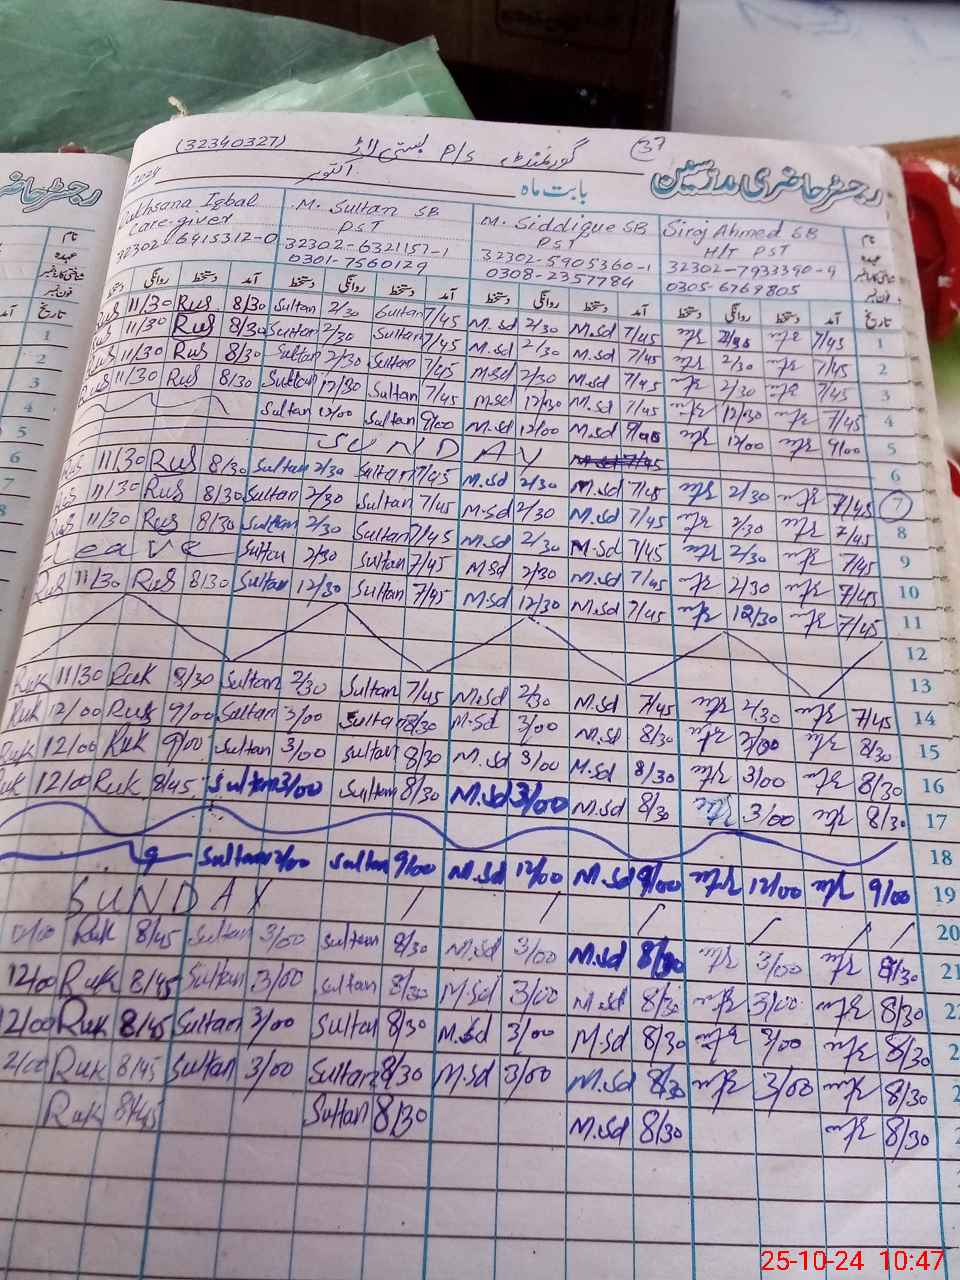 (32340327) گورنمنٹ P/S بستی لاڑ 37
رجسٹر حاضری مدرسین بابت ماہ اکتوبر 2024
Iqbal M. Sultan SB M. Siddique SB Siroj Ahmed SB نام
Care-giver PST PST H/T PST عہدہ
32302-6415312-0 32302-6321151-1 32302-5905360-1 32302-7933390-9 شناختی کارڈ نمبر
0301-7560129 0308-2357784 0305-6769805 فون نمبر
دستخط روانگی دستخط آمد دستخط روانگی دستخط آمد دستخط روانگی دستخط آمد دستخط روانگی دستخط آمد تاریخ
11/30 Rus 8/30 Sultan 2/30 Sultan 7/45 M.sd 2/30 M.sd 7/45 7/45 1
11/30 Rus 8/30 Sultan 2/30 Sultan 7/45 M.sd 2/30 M.sd 7/45 2/30 7/45 2
11/30 Rus 8/30 Sultan 2/30 Sultan 7/45 M.sd 2/30 M.sd 7/45 2/30 7/45 3
11/30 Rus 8/30 Sultan 12/30 Sultan 7/45 M.sd 12/30 M.sd 7/45 12/30 7/45 4
Sultan 12/00 Sultan 9/00 M.sd 12/00 M.sd 9/00 12/00 9/00 5
SUNDAY 6
Rus 11/30 Rus 8/30 Sultan 2/30 Sultan 7/45 M.sd 2/30 M.sd 7/45 2/30 7/45 7
Rus 11/30 Rus 8/30 Sultan 2/30 Sultan 7/45 M.sd 2/30 M.sd 7/45 2/30 7/45 8
Rus 11/30 Rus 8/30 Sultan 2/30 Sultan 7/45 M.sd 2/30 M.sd 7/45 2/30 7/45 9
Leave Sultan 2/30 Sultan 7/45 M.sd 2/30 M.sd 7/45 2/30 7/45 10
Rus 11/30 Rus 8/30 Sultan 12/30 Sultan 7/45 M.sd 12/30 M.sd 7/45 12/30 7/45 11
12
13
Ruk 11/30 Ruk 8/30 Sultan 2/30 Sultan 7/45 M.sd 2/30 M.sd 7/45 2/30 7/45 14
Ruk 12/00 Ruk 9/00 Sultan 3/00 Sultan 8/30 M.sd 3/00 M.sd 8/30 3/00 8/30 15
Ruk 12/00 Ruk 9/00 Sultan 3/00 Sultan 8/30 M.sd 3/00 M.sd 8/30 3/00 8/30 16
Ruk 12/00 Ruk 8/45 Sultan 3/00 Sultan 8/30 M.sd 3/00 M.sd 8/30 3/00 8/30 17
18
Sultan 12/00 Sultan 9/00 M.sd 12/00 M.sd 9/00 12/00 9/00 19
SUNDAY 20
Ruk 8/45 Sultan 3/00 Sultan 8/30 M.sd 3/00 M.sd 8/30 3/00 8/30 21
12/00 Ruk 8/45 Sultan 3/00 Sultan 8/30 M.sd 3/00 M.sd 8/30 3/00 8/30
12/00 Ruk 8/45 Sultan 3/00 Sultan 8/30 M.sd 3/00 M.sd 8/30 3/00 8/30
Ruk 8/45 Sultan 3/00 Sultan 8/30 M.sd 3/00 M.sd 8/30 3/00 8/30
Ruk 8/45 Sultan 8/30 M.sd 8/30 8/30
25-10-24 10:47